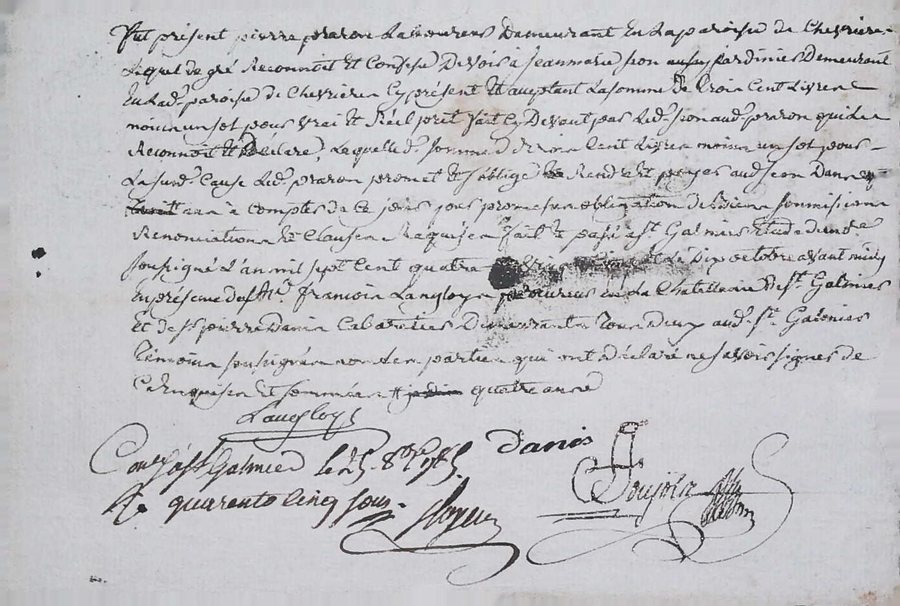 Fut présent pierre praron Laboureur Demeurant En La paroisse de Chevrière
Lequel de gré Reconnoit Et Confesse Devoir à jeanmarie jeon aussy jardinier Demeurant
En Lad. paroisse de Chevrieres Cy présent Et acceptant La somme De trois Cent Livres
moins un sol pour vrai Et Réel prêt fait Cy Devant par Led. jeon aud. praron qui Le
Reconnoit Et Declare, Laquelle d. somme de trois Cent Livres moins un sol pour
La susd. Cause Led. praron promet Et s'oblige Rendre Et payer aud. jeon Dans
ans à Compter de Ce jour sous promesse obligation de biens soumissions
Renonciations Et Clauses Requises fait Et passé a St. Galmier Etude du no.re
soussigné L'an mil sept Cent quatre Et Le Dix octobre avant midy
En présence de s.r François Langloys procureur en La Chatellenie De St. Galmier
Et de s.r pierre Danis Cabaretier Demeurants Tous Deux aud. St. Galmier
Témoins soussignés non Les parties qui ont déclaré ne savoir signer de
Ce Enquises Et sommées quatre ans
Langloys
Danis
Con.lé à St Galmier le 25 8bre 1785
R. quarante cinq sous